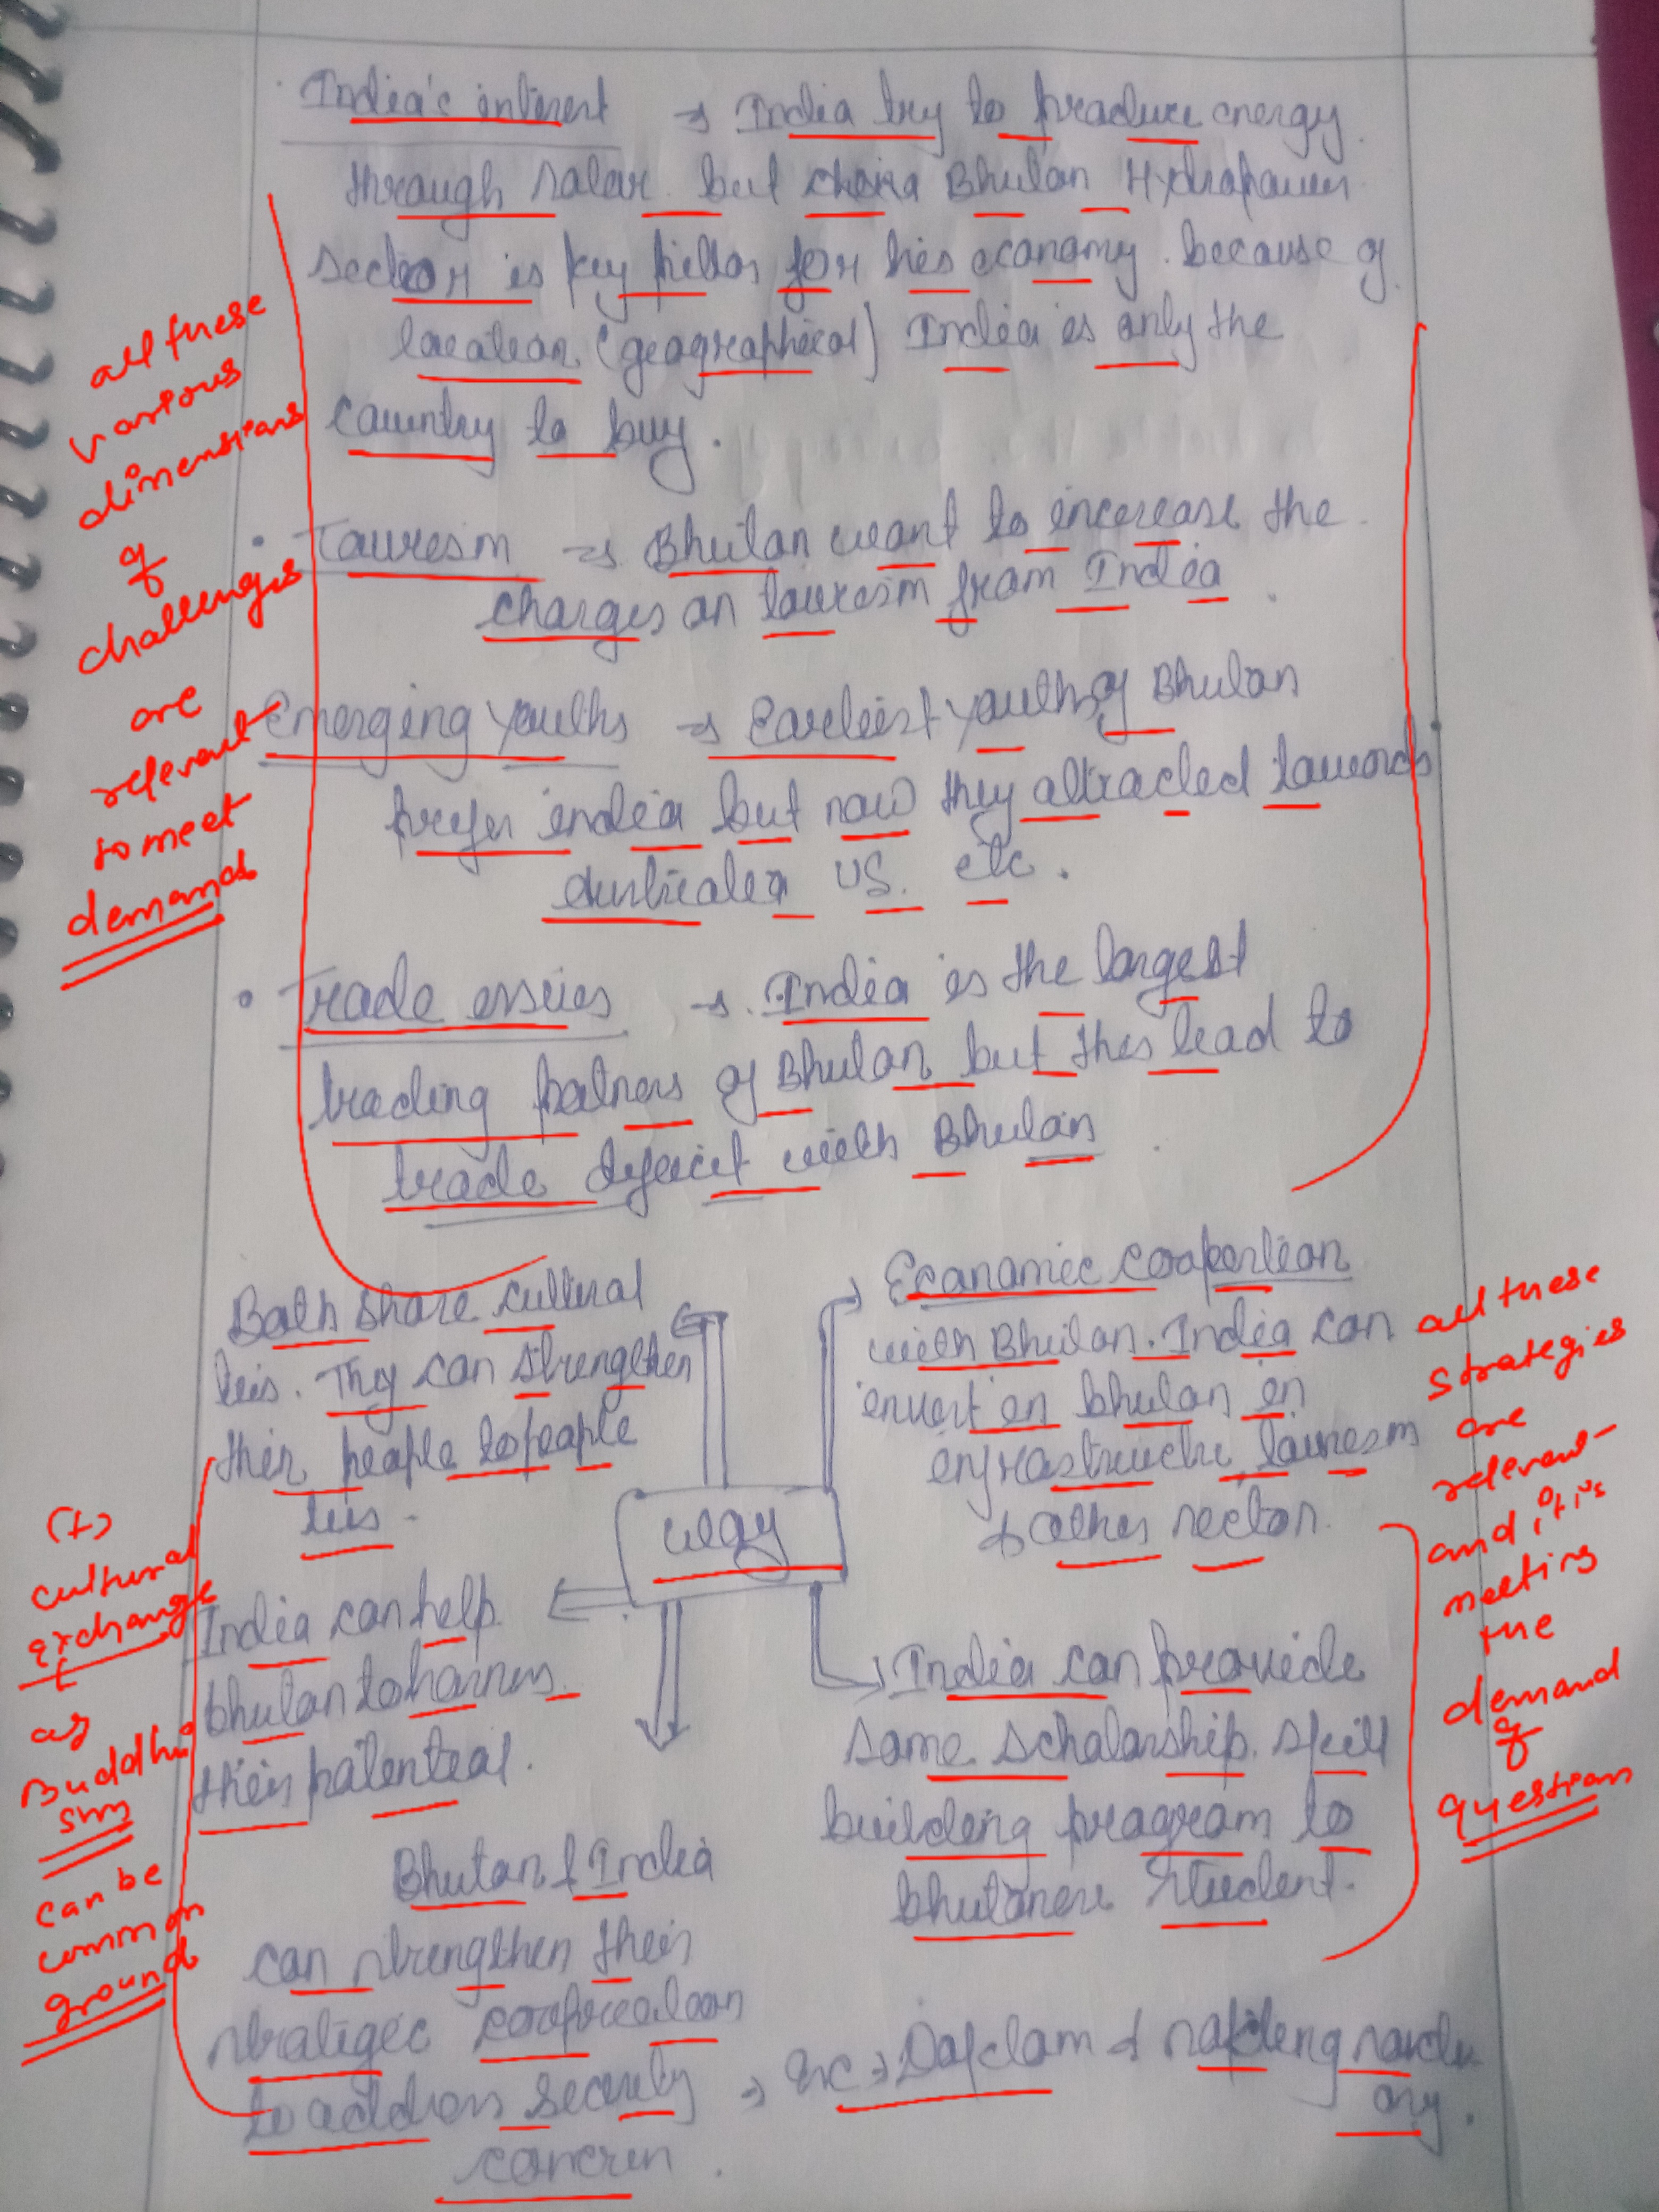 India's interest → India try to produce energy
through solar but Bhutan Hydropower
sector is key pillar for his economy. because of
location (geographical) India is only the
country to buy.
• Tourism → Bhutan want to increase the
charges on tourism from India.
Emerging youths → Earliest youths of Bhutan
prefer india but now they attracted towards
US. etc.
• Trade issues → India is the largest
trading patners of Bhutan but this lead to
trade deficit with Bhutan
all these
various
dimensions
of
challenges
are
relevant
to meet
demands
Both share cultural
ties. They can strengthen
their people to people
ties.
Economic cooperation
with Bhutan. India can
invest in bhutan in
tourism
& other sector.
way
India can help
bhutan to harness
their potential.
India can provide
some scholarship. skill
building program to
bhutanese student.
Bhutan & India
can strengthen their
strategic cooperation
to address security → Ex → Doklam &
concern.
all these
strategies
are
relevant
and it is
meeting
the
demand
of
question
(+)
cultural
exchange
as
Buddhi
sm
can be
common
ground